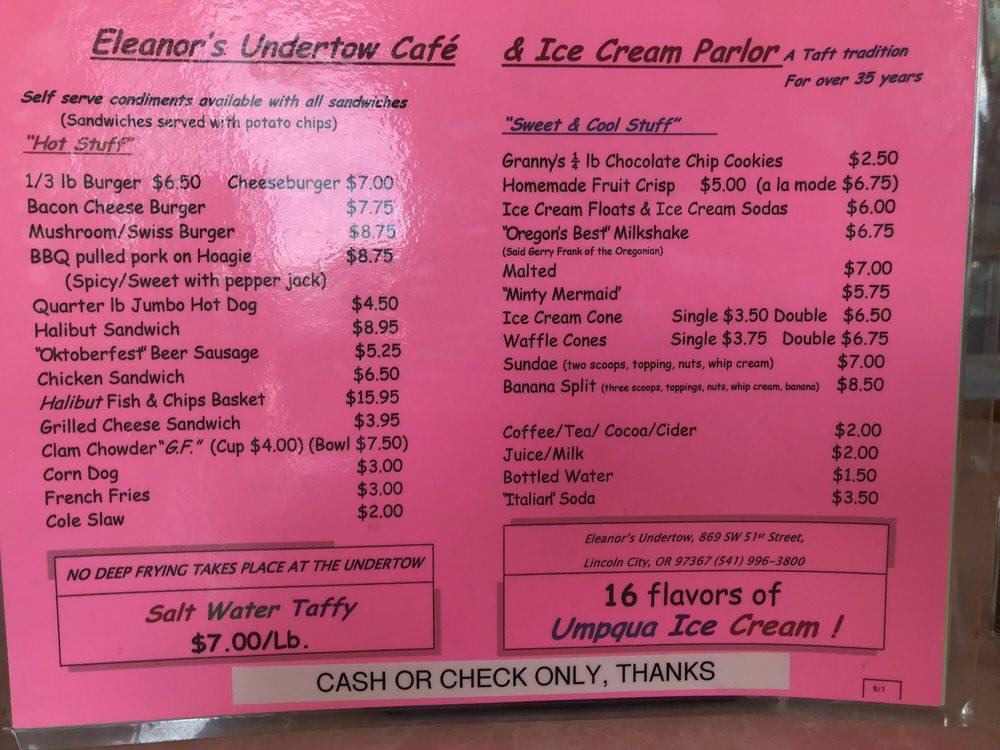 Eleanor's Undertow Café & Ice Cream Parlor A Taft tradition
For over 35 years
Self serve condiments available with all sandwiches
(Sandwiches served with potato chips)
"Hot Stuff"
1/3 lb Burger $6.50 Cheeseburger $7.00
Bacon Cheese Burger $7.75
Mushroom/Swiss Burger $8.75
BBQ pulled pork on Hoagie $8.75
(Spicy/Sweet with pepper jack)
Quarter lb Jumbo Hot Dog $4.50
Halibut Sandwich $8.95
"Oktoberfest" Beer Sausage $5.25
Chicken Sandwich $6.50
Halibut Fish & Chips Basket $15.95
Grilled Cheese Sandwich $3.95
Clam Chowder "G.F." (Cup $4.00) (Bowl $7.50)
Corn Dog $3.00
French Fries $3.00
Cole Slaw $2.00
NO DEEP FRYING TAKES PLACE AT THE UNDERTOW
Salt Water Taffy
$7.00/Lb.
"Sweet & Cool Stuff"
Granny's ¼ lb Chocolate Chip Cookies $2.50
Homemade Fruit Crisp $5.00 (a la mode $6.75)
Ice Cream Floats & Ice Cream Sodas $6.00
"Oregon's Best" Milkshake $6.75
(Said Gerry Frank of the Oregonian)
Malted $7.00
"Minty Mermaid" $5.75
Ice Cream Cone Single $3.50 Double $6.50
Waffle Cones Single $3.75 Double $6.75
Sundae (two scoops, topping, nuts, whip cream) $7.00
Banana Split (three scoops, toppings, nuts, whip cream, banana) $8.50
Coffee/Tea/ Cocoa/Cider $2.00
Juice/Milk $2.00
Bottled Water $1.50
"Italian" Soda $3.50
Eleanor's Undertow, 869 SW 51st Street,
Lincoln City, OR 97367 (541) 996-3800
16 flavors of
Umpqua Ice Cream !
CASH OR CHECK ONLY, THANKS
9/1